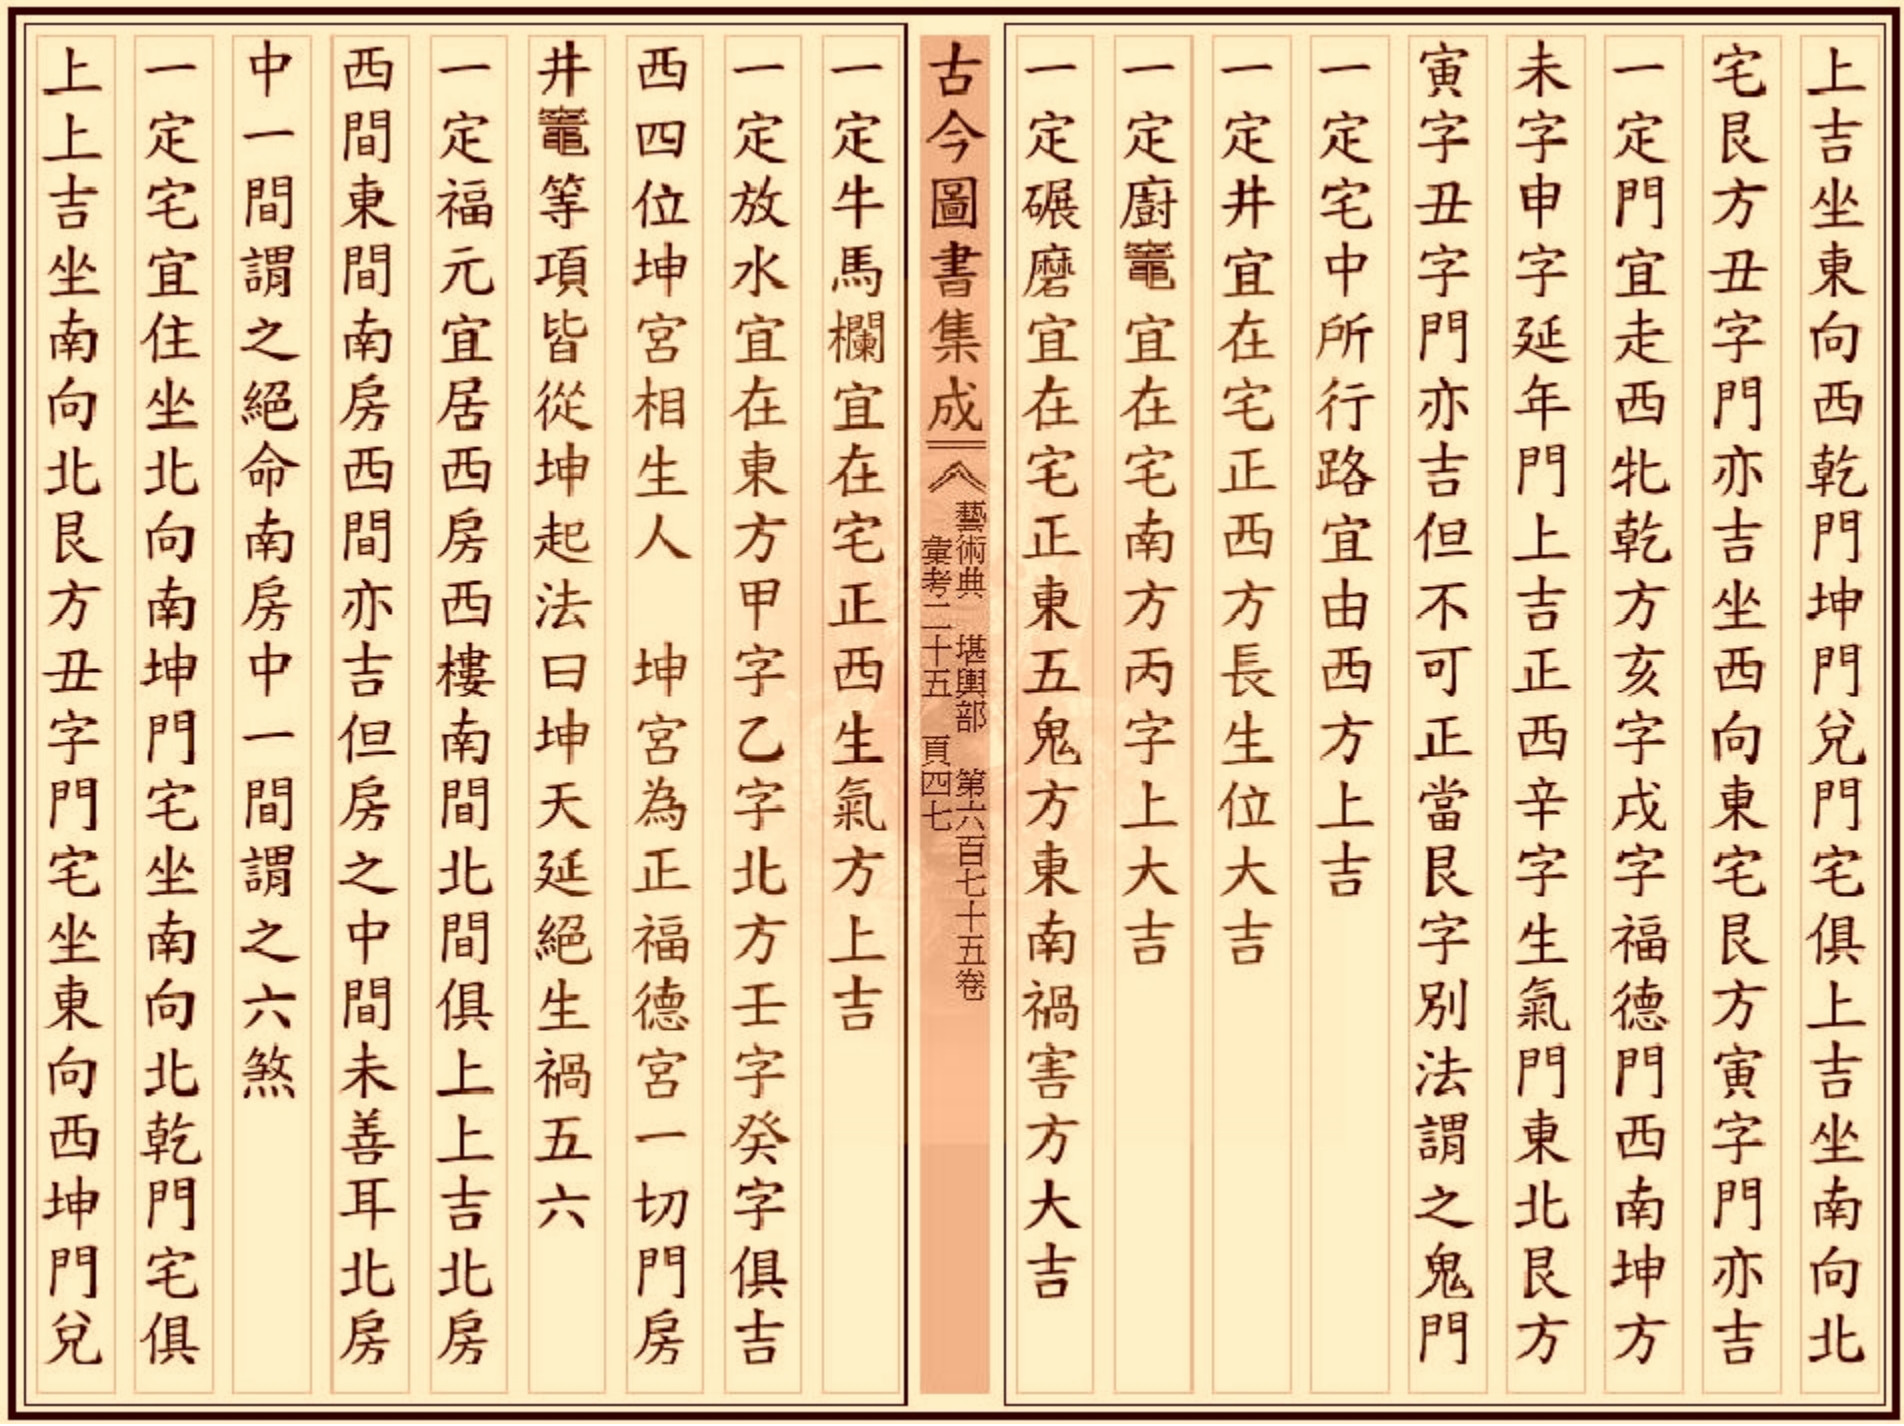 上吉坐東向西乾門坤門兌門宅俱上吉坐南向北
宅艮方丑字門亦吉坐西向東宅艮方寅字門亦吉
一定門宜走西牝乾方亥字戌字福德門西南坤方
未字申字延年門上吉正西辛字生氣門東北艮方
寅字丑字門亦吉但不可正當艮字別法謂之鬼門
一定宅中所行路宜由西方上吉
一定井宜在宅正西方長生位大吉
一定廚竈宜在宅南方丙字上大吉
一定碾磨宜在宅正東五鬼方東南禍害方大吉
古今圖書集成
藝術典 堪輿部 第六百七十五卷
彙考二十五 頁四七
一定牛馬欄宜在宅正西生氣方上吉
一定放水宜在東方甲字乙字北方壬字癸字俱吉
西四位坤宮相生人 坤宮為正福德宮一切門房
井竈等項皆從坤起法曰坤天延絕生禍五六
一定福元宜居西房西樓南間北間俱上上吉北房
西間東間南房西間亦吉但房之中間未善耳北房
中一間謂之絕命南房中一間謂之六煞
一定宅宜住坐北向南坤門宅坐南向北乾門宅俱
上上吉坐南向北艮方丑字門宅坐東向西坤門兌